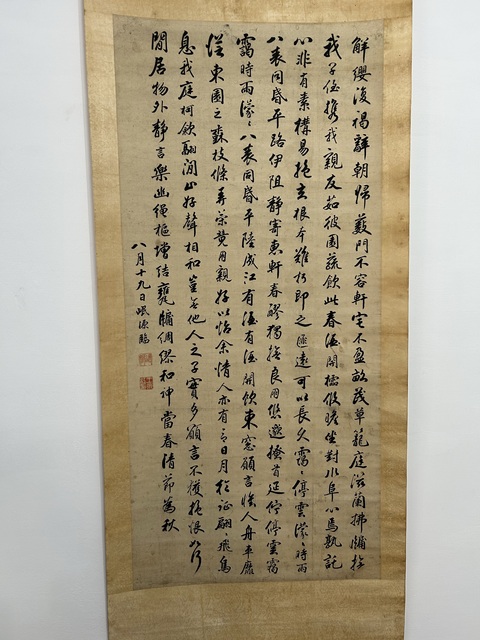 解纓復褐辭朝歸藪門不容軒宅不盈畝茂草籠庭滋蘭拂牖撫
我子侄携我親友茹彼園蔬飲此春酒開櫺攸瞻坐對川阜心焉孰託
心非有素構易抱玄根本難朽即之匪遠可以長久靄〻停雲濛〻時雨
八表同昏平路伊阻靜寄東軒春醪獨撫良朋悠邈搔首延佇停雲靄
靄時雨濛〻八表同昏平陸成江有酒有酒閒飲東窓願言懷人舟車靡
從東園之樹枝條再榮用親好以怡余情人亦有言日月於征翩〻飛鳥
息我庭柯斂翮閒止好聲相和豈無他人之子實多願言不獲抱恨如何
閒居物外靜言樂幽繩樞增結甕牖綢繆和神當春清節為秋
八月十九日岷源臨